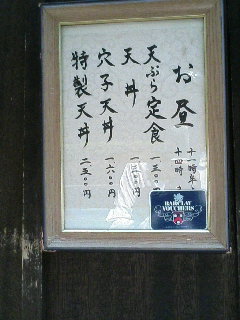 お昼
十一時半
十四時
天ぷら定食 一三〇〇円
天丼
穴子天丼 一六〇〇円
特製天丼 二五〇〇円
BARCLAY
VOUCHERS